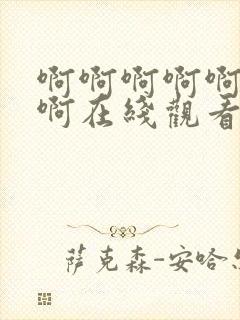 啊啊啊啊啊
啊在綫觀看
萨克森-安哈